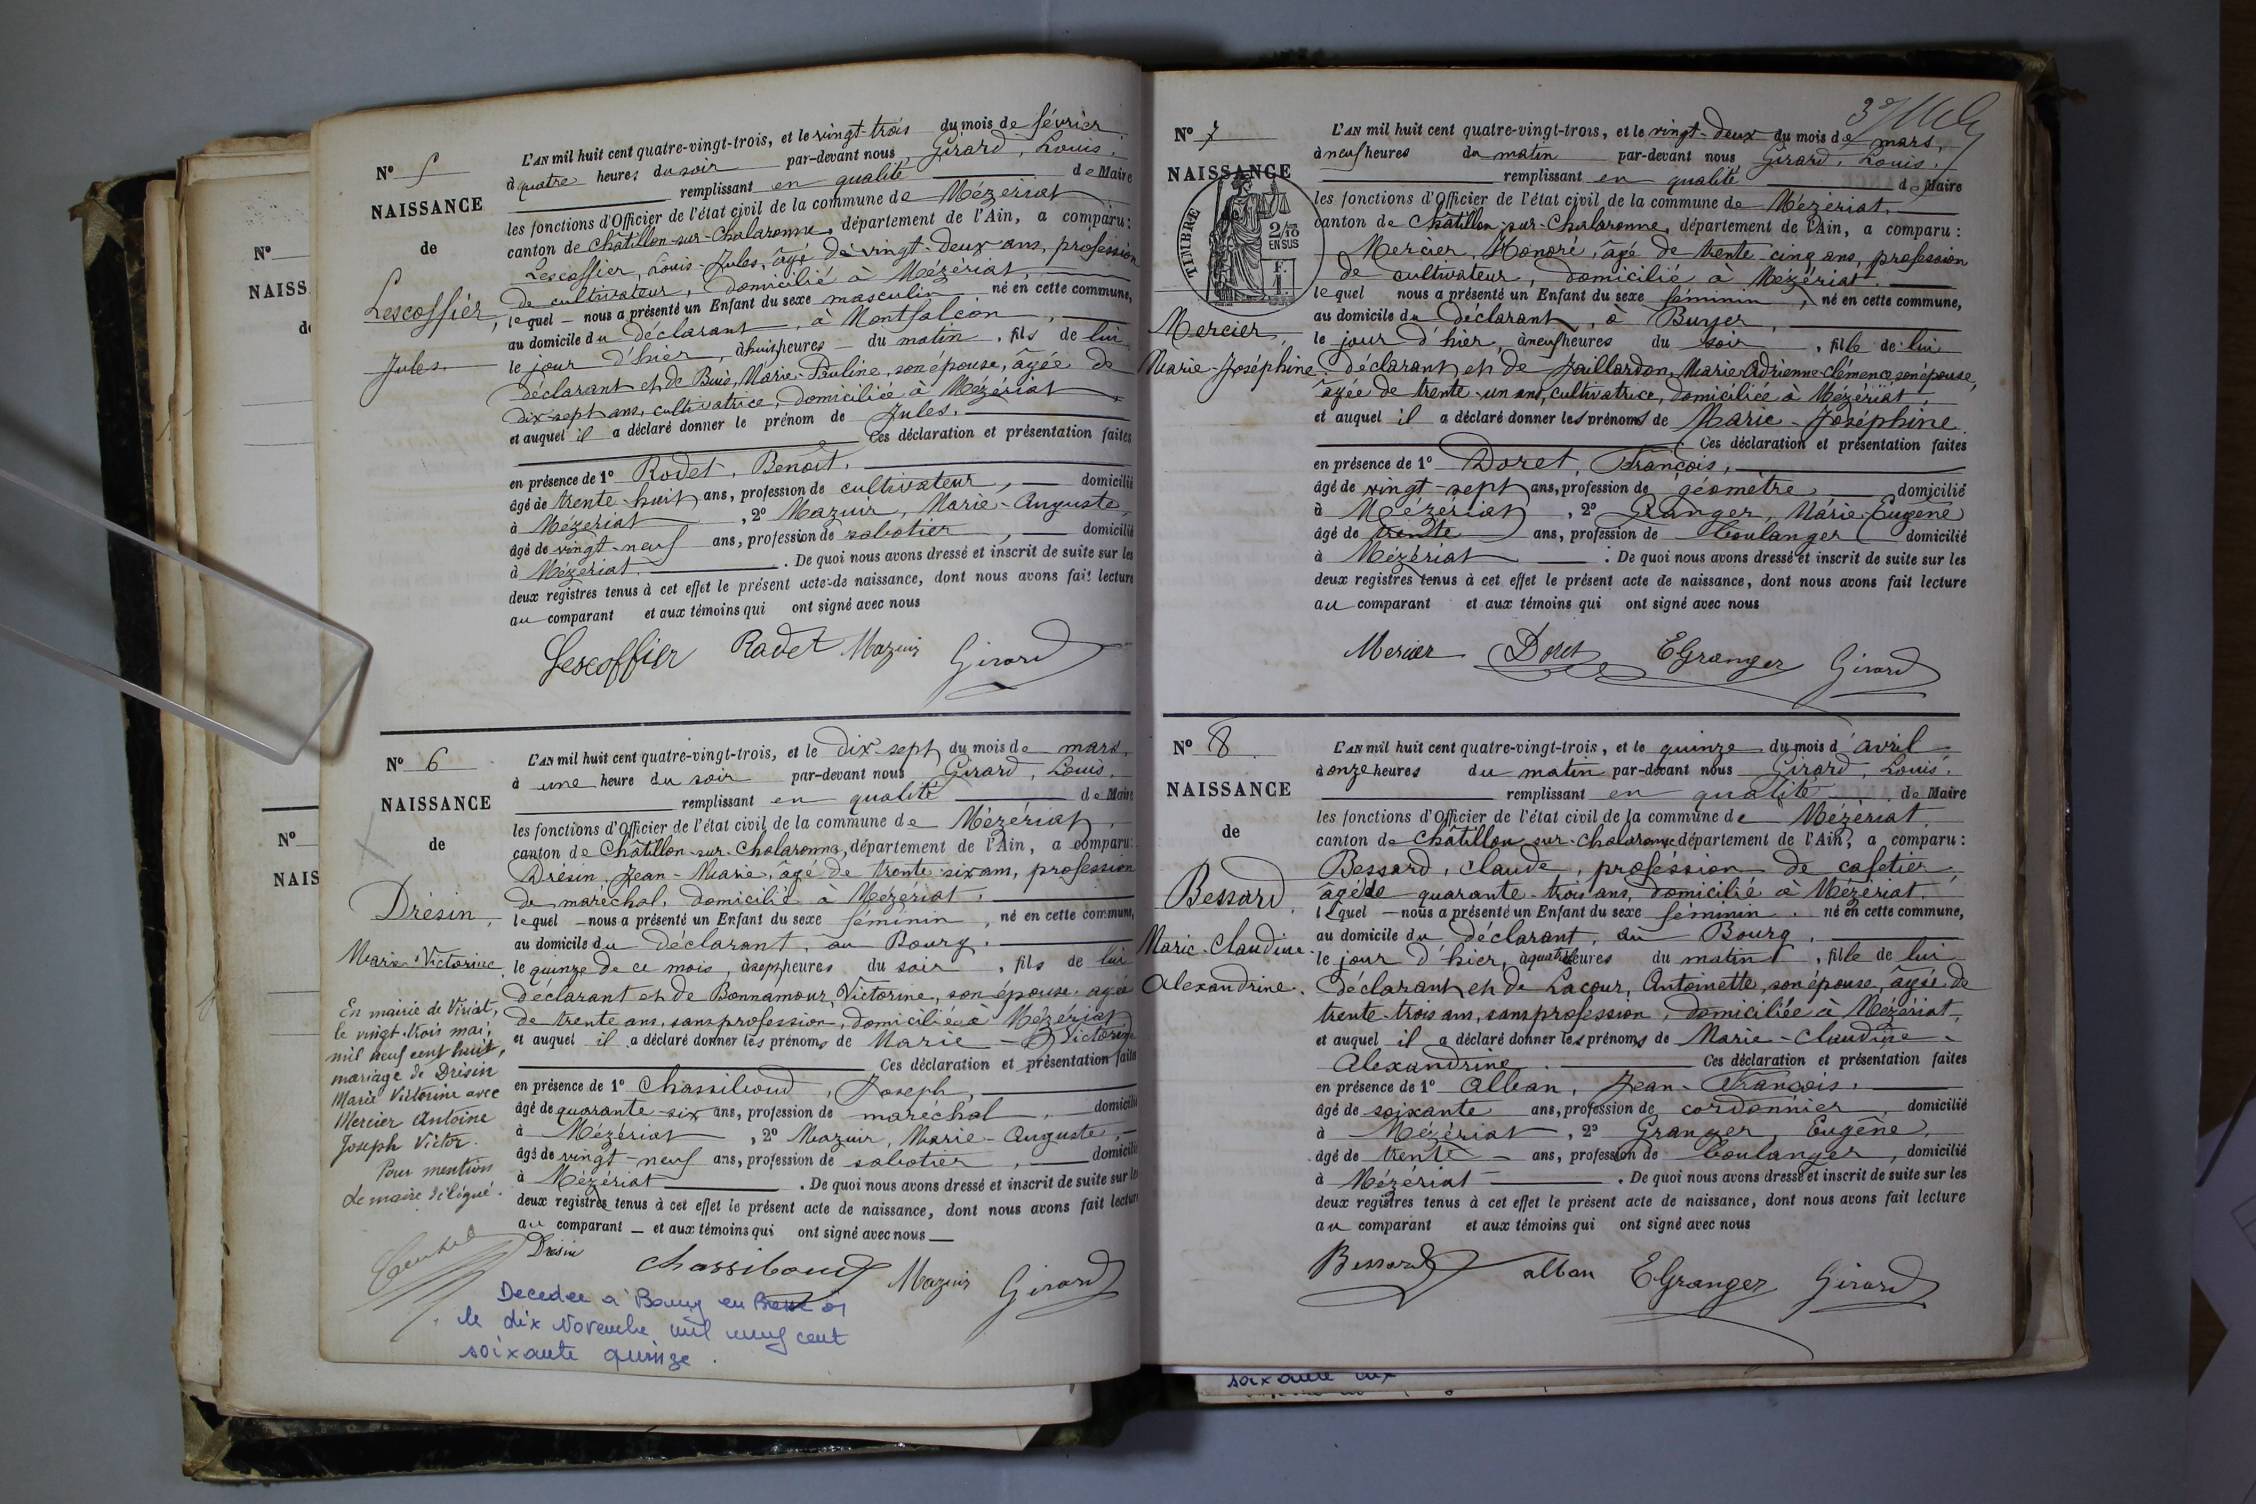 N° 5
NAISSANCE
de
Lescoffier,
Jules.
L'AN mil huit cent quatre-vingt-trois, et le vingt-trois du mois de février,
à quatre heures du soir par-devant nous, Girard, Louis,
remplissant en qualité de Maire
les fonctions d'Officier de l'état civil de la commune de Mézériat
canton de Châtillon-sur-Chalaronne, département de l'Ain, a comparu :
Lescoffier, Louis-Jules, âgé de vingt-deux ans, profession
de cultivateur, domicilié à Mézériat,
lequel nous a présenté un Enfant du sexe masculin né en cette commune,
au domicile du déclarant, à Montfalcon,
le jour d'hier, à huit heures du matin, fils de lui
déclarant et de Buis, Marie-Pauline, son épouse, âgée de
dix-sept ans, cultivatrice, domiciliée à Mézériat
et auquel il a déclaré donner le prénom de Jules.
Ces déclaration et présentation faites
en présence de 1° Rodet, Benoît,
âgé de trente-huit ans, profession de cultivateur, domicilié
à Mézériat, 2° Mazuir, Marie-Auguste,
âgé de vingt-neuf ans, profession de sabotier, domicilié
à Mézériat. De quoi nous avons dressé et inscrit de suite sur les
deux registres tenus à cet effet le présent acte de naissance, dont nous avons fait lecture
au comparant et aux témoins qui ont signé avec nous
Lescoffier Rodet Mazuir Girard
N° 6
NAISSANCE
de
Drésin,
Marie-Victorine
En mairie de Viriat,
le vingt-trois mai,
mil neuf cent huit,
mariage de Drésin
Marie Victorine avec
Mercier Antoine
Joseph Victor.
Pour mention
Le maire délégué.
L'AN mil huit cent quatre-vingt-trois, et le dix-sept du mois de mars,
à une heure du soir par-devant nous Girard, Louis,
remplissant en qualité de Maire
les fonctions d'Officier de l'état civil de la commune de Mézériat,
canton de Châtillon-sur-Chalaronne, département de l'Ain, a comparu :
Drésin, Jean-Marie, âgé de trente-six ans, profession
de maréchal, domicilié à Mézériat,
lequel nous a présenté un Enfant du sexe féminin, né en cette commune,
au domicile du déclarant, au Bourg,
le quinze de ce mois, à sept heures du soir, fils de lui
déclarant et de Bonnamour, Victorine, son épouse, agée
de trente ans, sans profession, domiciliée à Mézériat
et auquel il a déclaré donner les prénoms de Marie-Victorine
Ces déclaration et présentation faites
en présence de 1° Chassiboud, Joseph,
âgé de quarante-six ans, profession de maréchal, domicilié
à Mézériat, 2° Mazuir, Marie-Auguste,
âgé de vingt-neuf ans, profession de sabotier, domicilié
à Mézériat. De quoi nous avons dressé et inscrit de suite sur les
deux registres tenus à cet effet le présent acte de naissance, dont nous avons fait lecture
au comparant et aux témoins qui ont signé avec nous
Drésin Chassiboud Mazuir Girard
Decedee a Bourg en Bresse 01
le dix Novembre mil neuf cent
soixante quinze.
N° 7
NAISSANCE
TIMBRE
2/10
EN SUS
Mercier,
Marie-Joséphine.
L'AN mil huit cent quatre-vingt-trois, et le vingt-deux du mois de mars,
à neuf heures du matin par-devant nous, Girard, Louis,
remplissant en qualité de Maire
les fonctions d'Officier de l'état civil de la commune de Mézériat,
canton de Châtillon-sur-Chalaronne, département de l'Ain, a comparu :
Mercier, Honoré, âgé de trente-cinq ans, profession
de cultivateur, domicilié à Mézériat,
lequel nous a présenté un Enfant du sexe féminin, né en cette commune,
au domicile du déclarant, à Buyer,
le jour d'hier, à neuf heures du soir, fille de lui
déclarant et de Jaillardon, Marie-Adrienne-Clémence, son épouse,
âgée de trente-un ans, cultivatrice, domiciliée à Mézériat
et auquel il a déclaré donner les prénoms de Marie-Joséphine
Ces déclaration et présentation faites
en présence de 1° Doret, François,
âgé de vingt-sept ans, profession de géomètre domicilié
à Mézériat, 2° Granger, Marie-Eugène
âgé de trente ans, profession de boulanger domicilié
à Mézériat. De quoi nous avons dressé et inscrit de suite sur les
deux registres tenus à cet effet le présent acte de naissance, dont nous avons fait lecture
au comparant et aux témoins qui ont signé avec nous
Mercier Doret EGranger Girard
N° 8
NAISSANCE
de
Bessard,
Marie-Claudine-
Alexandrine.
L'AN mil huit cent quatre-vingt-trois, et le quinze du mois d'avril
à onze heures du matin par-devant nous Girard, Louis,
remplissant en qualité de Maire
les fonctions d'Officier de l'état civil de la commune de Mézériat,
canton de Châtillon-sur-Chalaronne département de l'Ain, a comparu :
Bessard, Claude, profession de cafetier,
âgé de quarante-trois ans, domicilié à Mézériat,
lequel nous a présenté un Enfant du sexe féminin, né en cette commune,
au domicile du déclarant, au Bourg,
le jour d'hier, à quatre heures du matin, fille de lui
déclarant et de Lacour, Antoinette, son épouse, âgée de
trente-trois ans, sans profession, domiciliée à Mézériat,
et auquel il a déclaré donner les prénoms de Marie-Claudine-
Alexandrine. Ces déclaration et présentation faites
en présence de 1° Alban, Jean-François,
âgé de soixante ans, profession de cordonnier, domicilié
à Mézériat, 2° Granger, Eugène,
âgé de trente ans, profession de boulanger, domicilié
à Mézériat. De quoi nous avons dressé et inscrit de suite sur les
deux registres tenus à cet effet le présent acte de naissance, dont nous avons fait lecture
au comparant et aux témoins qui ont signé avec nous
Bessard alban EGranger Girard
N°
NAISS
de
N°
NAIS